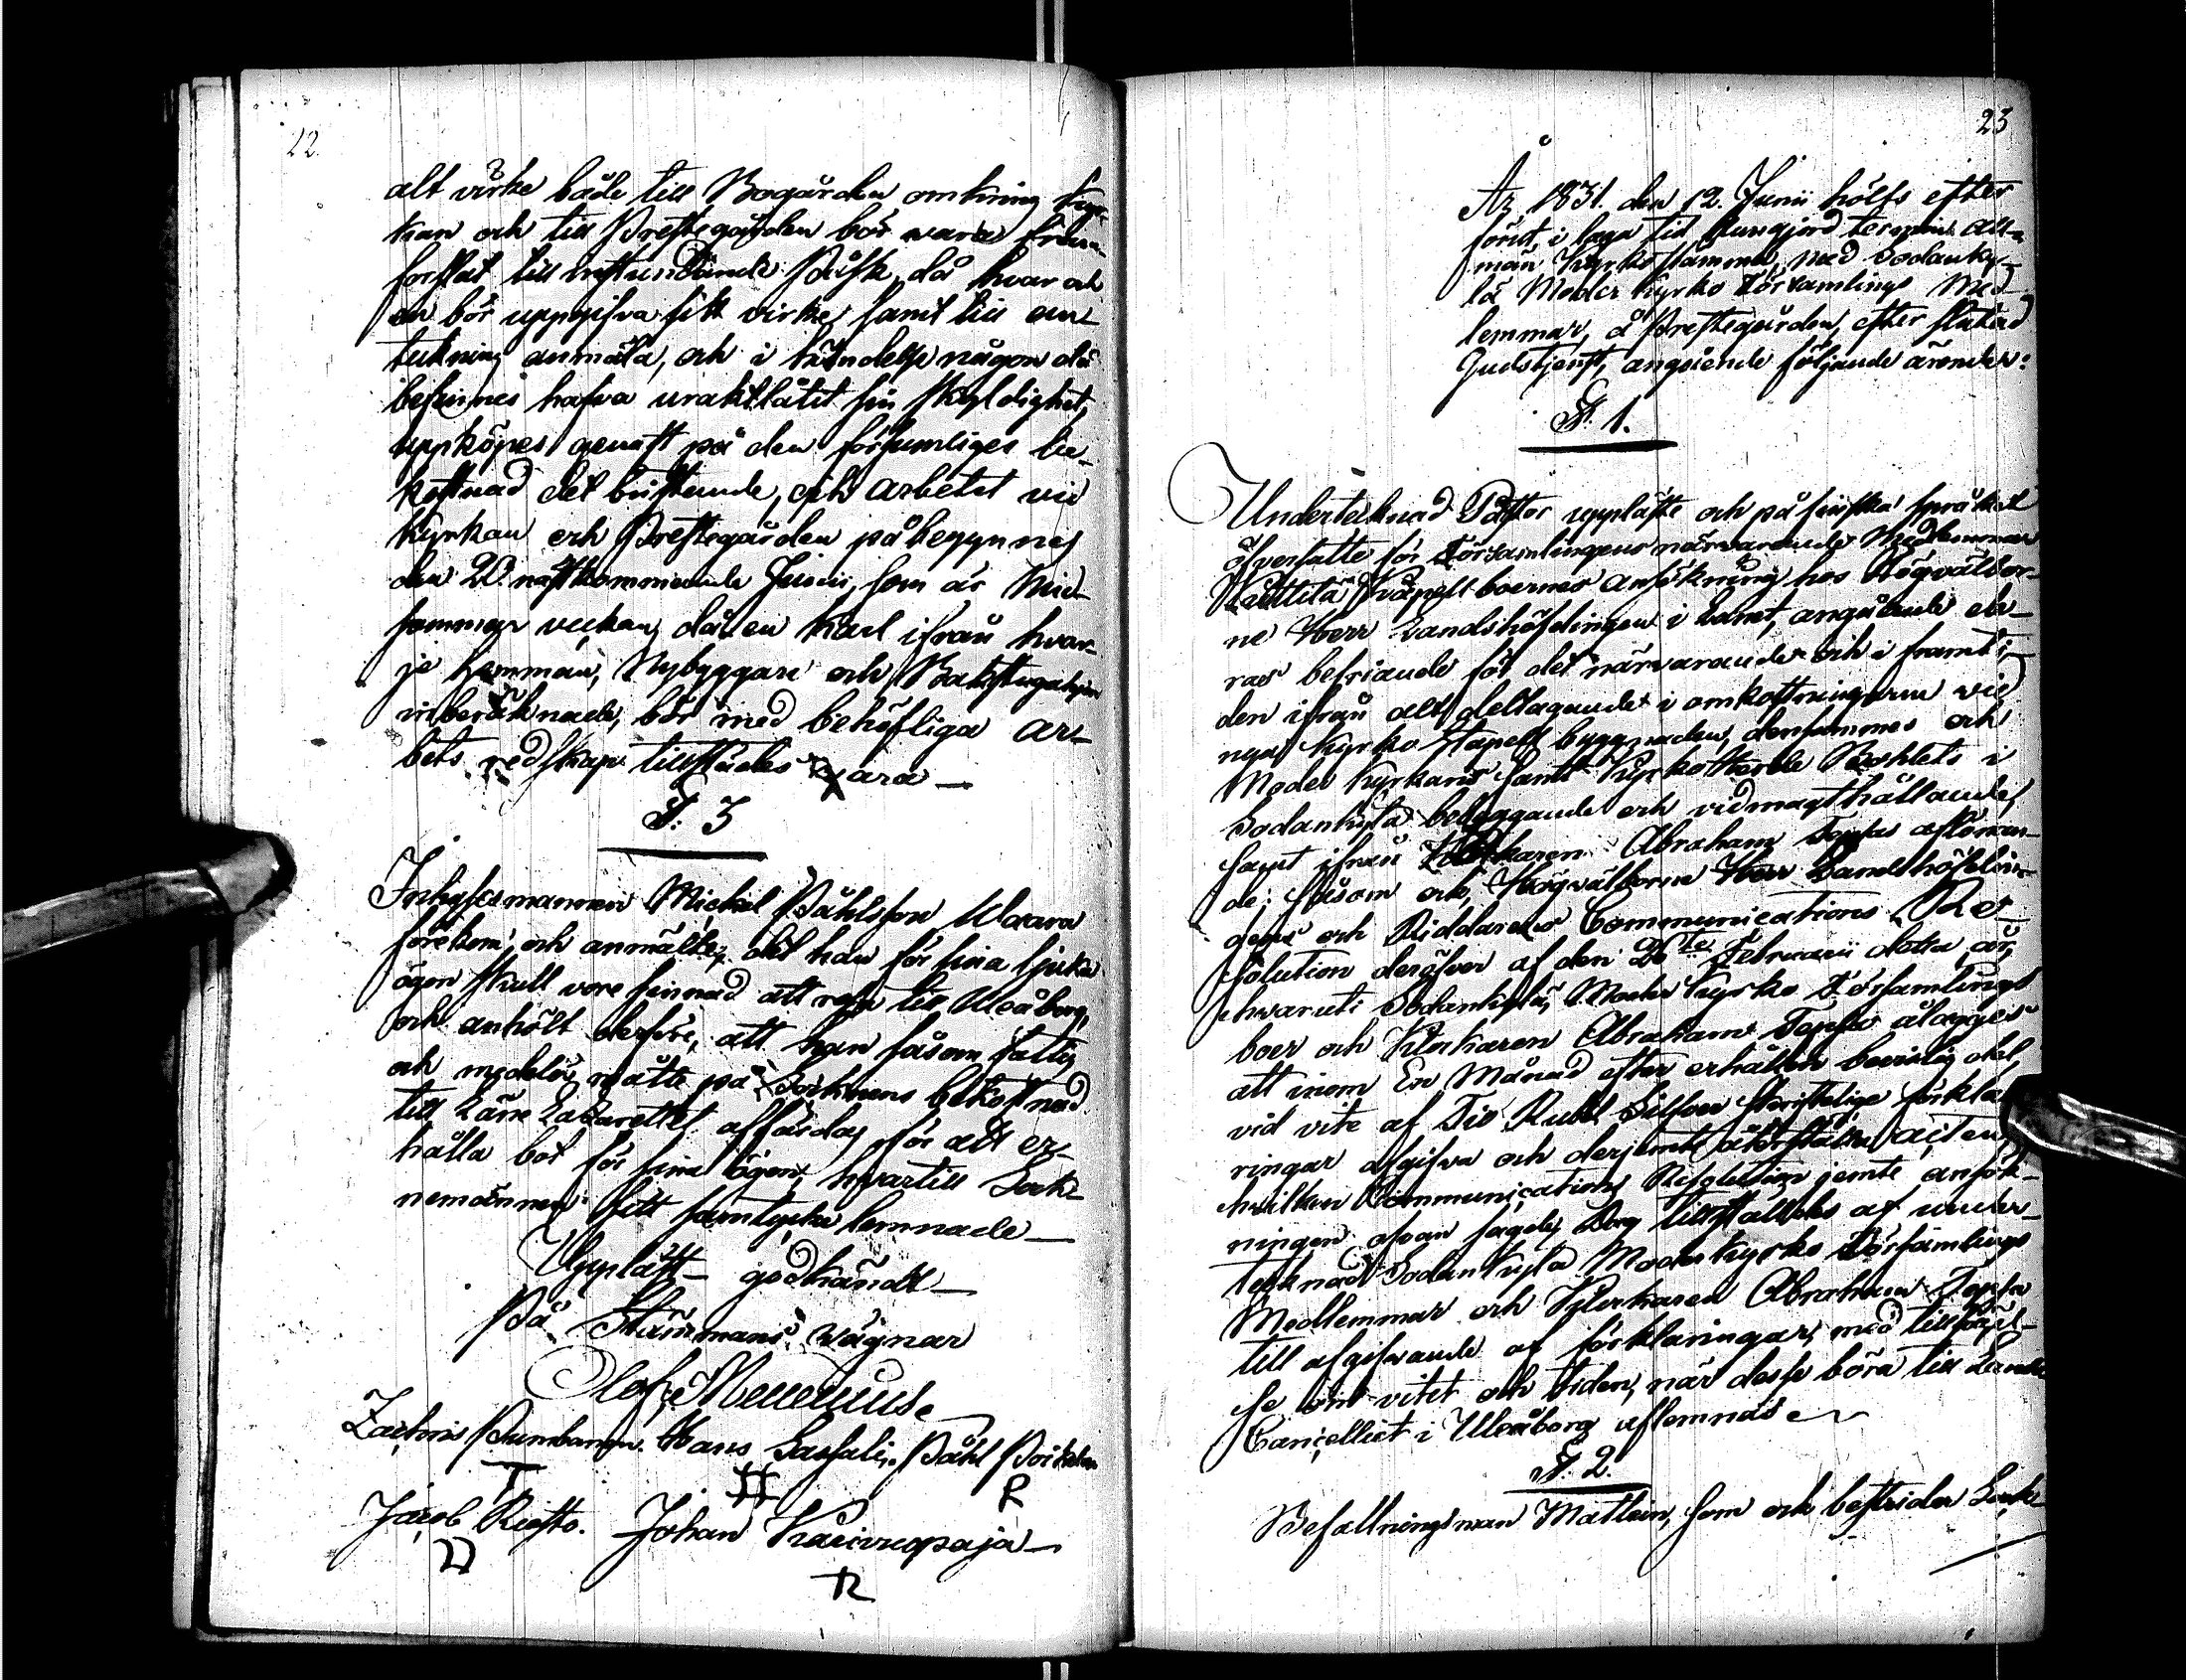 22.
alt virke både till Bogården omkring Kyr-
kan och till Prestegården bör wara fram-
forslat till nästundande Påsk, då hvar och
en bör uppgifva sitt virke samt till an-
tekning anmäla, och i händelse någon då
befinnes hafva uraktlåtit sin skyldighet,
uppköpes genast på den försumliges be-
kostnad det bristande, och arbetet vid
Kyrkan och Prestegården påbegynnes
den 20. nästkommande Junii, som är Mid-
sommars veckan, då en Karl ifrån hvar-
je hemman, Nybyggare och
inberäknade, bör med behöfliga ar-
bets redskap tillstädes vara —
§. 3
Inhysesmannen Mickel Påhlsson Waara
förekom, och anmälte, att han för sina sjuka
ögon skull vore sinnad att resa till Uleåborg,
och anhölt derföre, att han såsom fattig
och medellös måtte på Socknens bekostnad
till Läns Lazarettet affärdas för att er-
hålla bot för sina ögon, hvartill Sock-
nemännen sitt samtycke lemnade —
Uppläst — godkändt —
På Stämmans vägnar
Olof Mellenius
Zachris Pumbanen. Hans Sassali. Påhl Poikela
Jacob Riesto. Johan Kaarivuopaja —
23
År 1831. den 12. Junii hölts efter
förut, i laga tid kungjord termin all-
män Kyrkostämma, med Sodanky-
lä Moder Kyrko Församlings Med-
lemmar, å Prestegården, efter slutad
Gudstjenst, angående följande ärender:
§. 1.
Undertecknad Pastor uppläste och på finska språket
öfversatte för Församlingens närvarande Medlemmar
Kittilä Kapellboernes ansökning hos Högvälbor-
ne Herr Landshöfdingen i Länet, angående de-
ras befriande för det närvarande och i framti-
den ifrån allt deltagande i omkostningarna vid
nya Kyrko Stapels byggnaden, densammes och
Moder Kyrkans samt Kyrkoherde Bohlets i
Sodankylä bebyggande och vidmagthållande,
samt ifrån Klockaren Abraham Toppa aflönan-
de; såsom ock, Högvälborne Herr Landshöfdin-
gens och Riddarens Communications Re-
solution deröfver af den 26te Februarii detta år,
hvaruti Sodankylä Moder Kyrko Församlings
boer och Klockaren Abraham Toppa ålägges
att inom En Månad efter erhållen bevislig del,
vid vite af Tio Rubel Silfver skriftelige förkla-
ringar afgifva och derjemte återställa acten,
hvilken Communications Resolution jemte ansök-
ningen ofvan sagde dag tillställdes af under-
tecknad Sodankylä Moderkyrko Församlings
Medlemmar och Klockaren Abraham Toppa
till afgifvande af förklaringar, med tillsägel-
se om vitet och tiden, när desse böra till Lands
Cancelliet i Uleåborg aflemnas.
§. 2.
Befallningsman Matlein, som ock bestrider Sock-